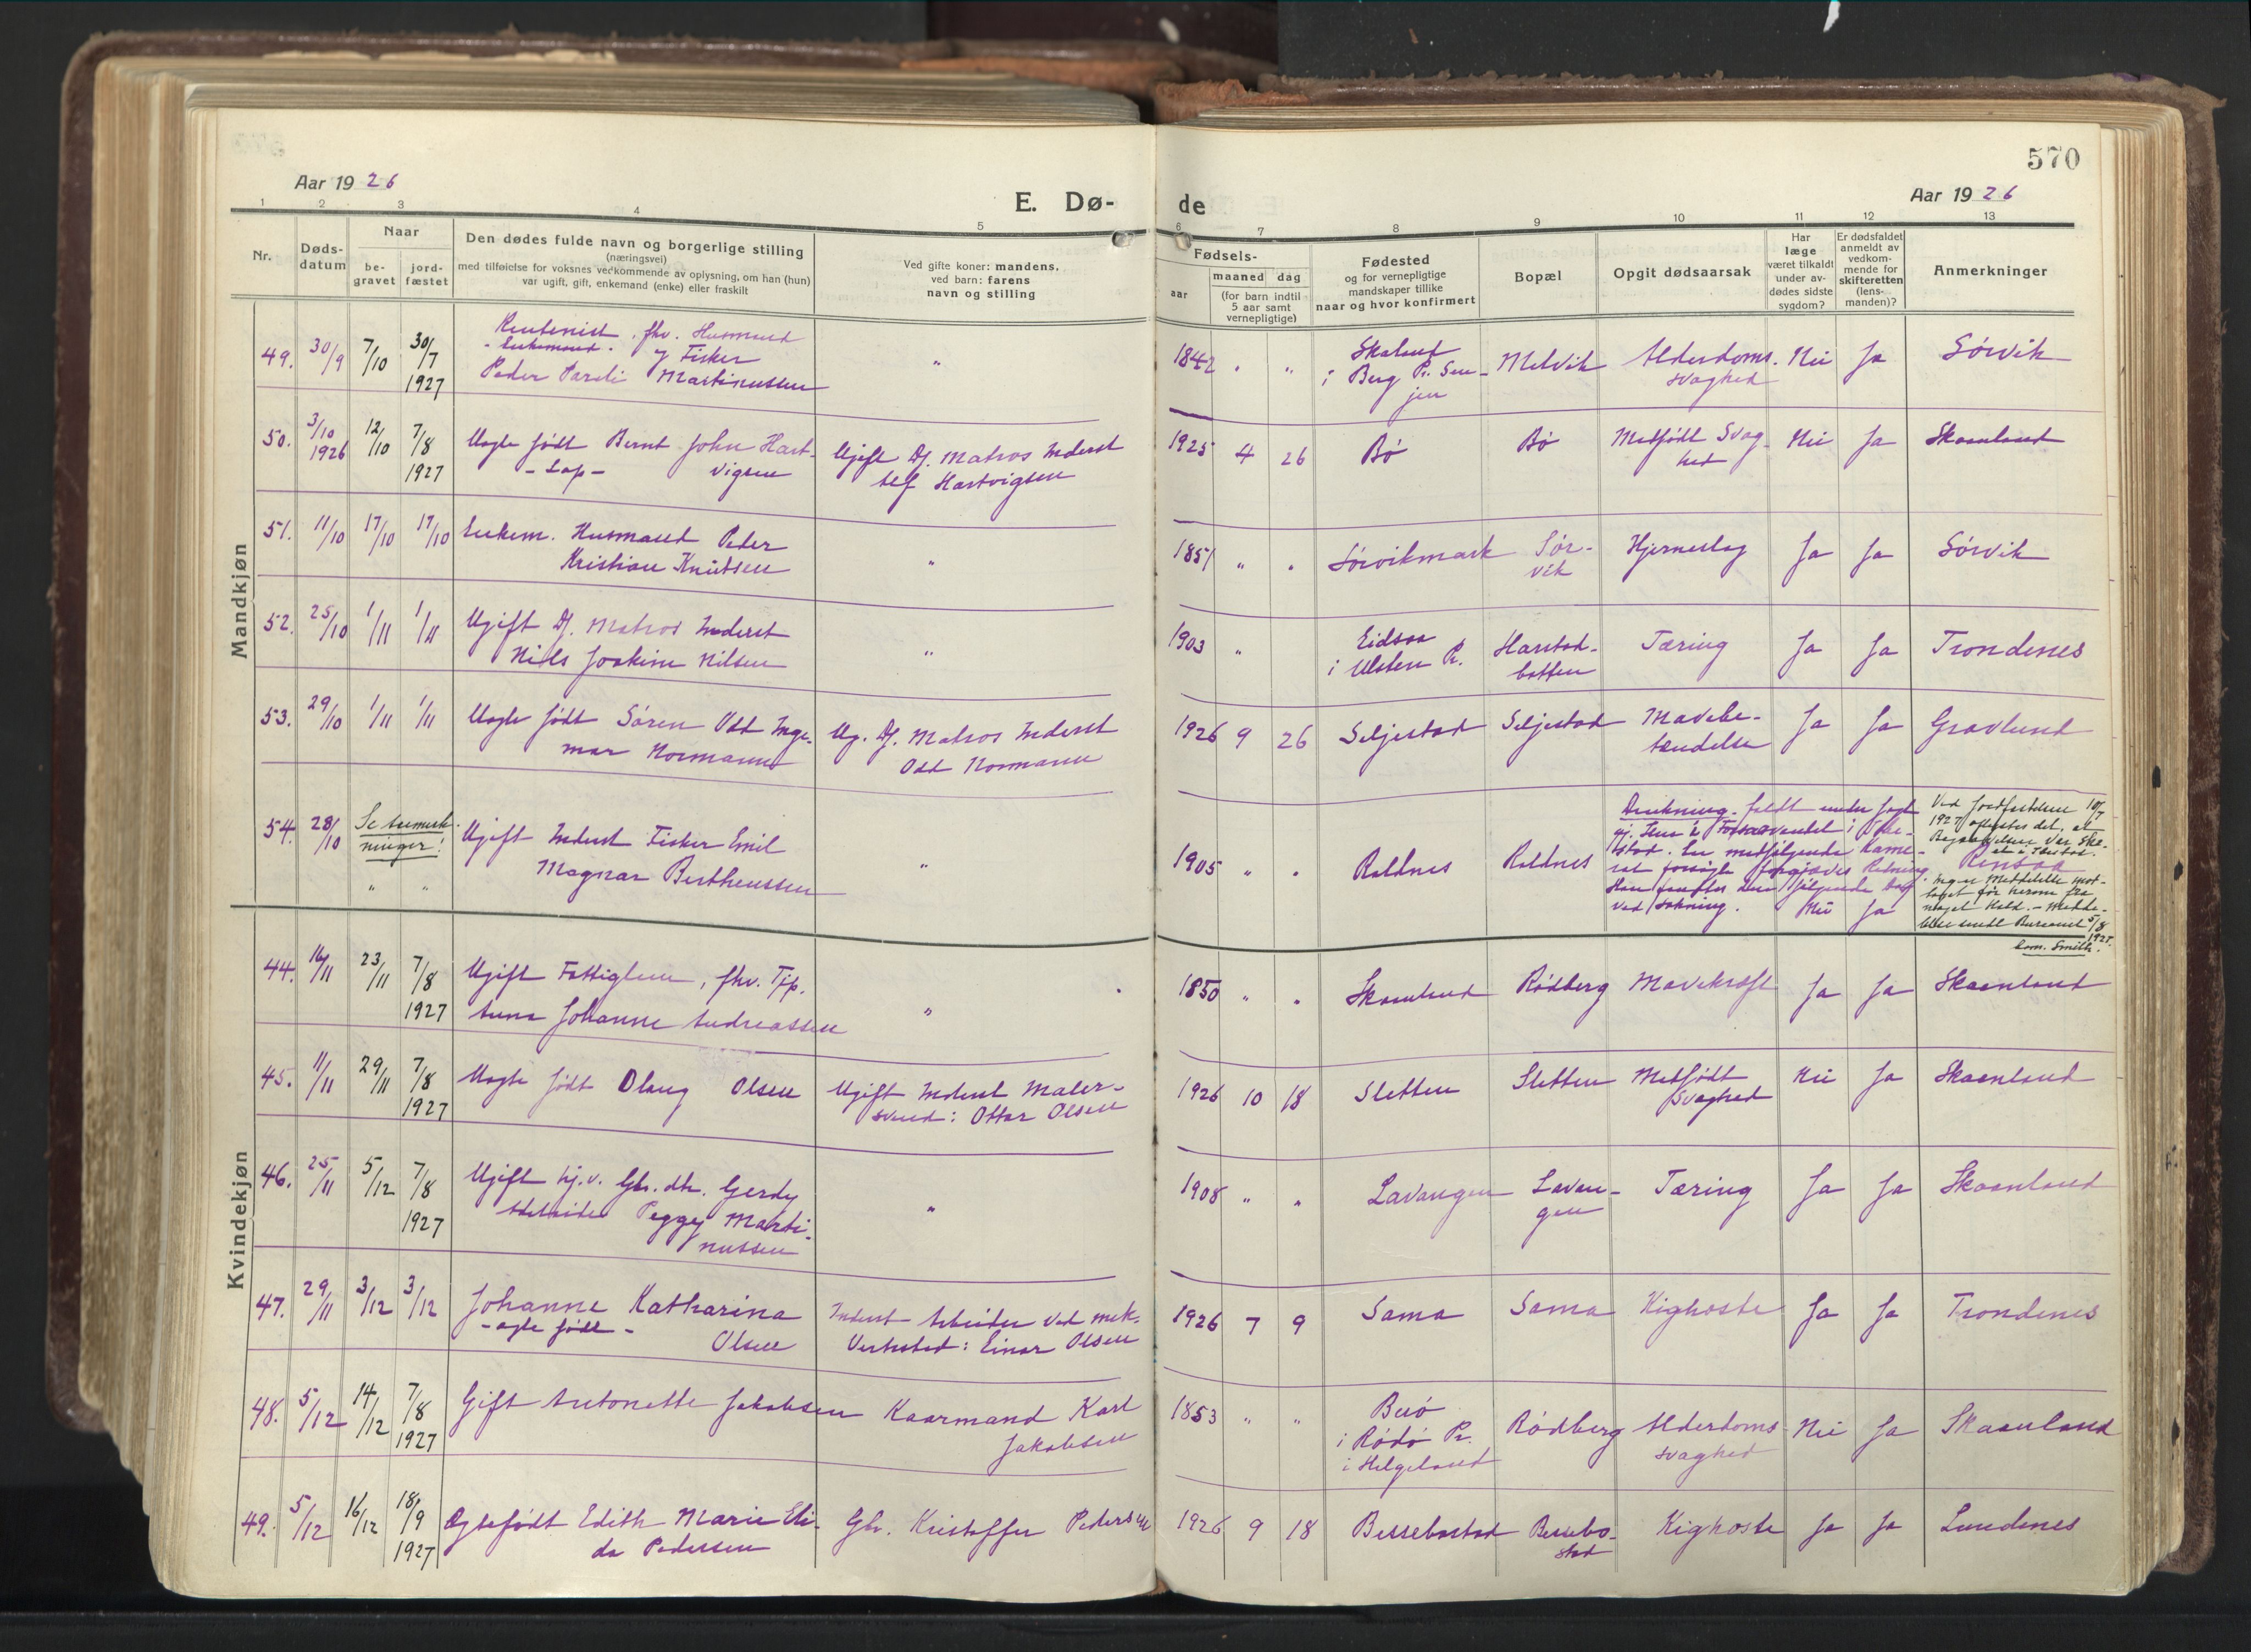 570
Aar 1926
Aar 1926
E. Dø-
de
1
2
3
4
5
6
7
8
9
10
11
12
13
Nr.
Døds-
datum
Naar
be-
gravet
jord-
fæstet
Den dødes fulde navn og borgerlige stilling
(næringsvei)
med tilføielse for voksnes vedkommende av oplysning, om han (hun)
var ugift, gift, enkemand (enke) eller fraskilt
Ved gifte koner: mandens,
ved barn: farens
navn og stilling
Fødsels-
aar
maaned
dag
(for barn indtil
5 aar samt
vernepligtige)
Fødested
og for vernepligtige
mandskaper tillike
naar og hvor konfirmert
Bopæl
Opgit dødsaarsak
Har
læge
været tilkaldt
under av-
dødes sidste
sygdom?
Er dødsfaldet
anmeldt av
vedkom-
mende for
skifteretten
(lens-
manden)?
Anmerkninger
Mandkjøn
49. 30/9 7/10 30/7 1927
fhv. Husmand
- Enkemand - og Fisker
Peder Martinussen
"
1842 " "
i Berg Pr. Sen-
jen
Melvik
Alderdoms-
svaghed
Nei Ja Sørvik
50. 3/10 1926 12/10 7/8 1927
Uægte født Bernt John Hart-
- Lap - vigsen
Ugift Df. Matros Inderst
Alf Hartvigsen
1925 4 26 Bø Bø
Medfødt Svag-
hed
Nei Ja Skaanland
51. 11/10 17/10 17/10
Enkem. Husmand Peder
Kristian Knutsen
"
1851 " " Sørvikmark
Sør-
vik
Hjerneslag Ja Ja Sørvik
52. 25/10 1/11 1/11
Ugift Df. Matros Inderst
Nils Joakim Nilsen
"
1903 "
Eidsaa
i Ulsten Pr.
Harstad-
botten
Tæring Ja Ja Trondenes
53. 29/10 1/11 1/11
Uægte født Søren Odd Inge-
mar Normann
Ug. Df. Matros Inderst
Odd Normann
1926 9 26 Seljestad Seljestad
Mavebe-
tændelse
Ja Ja Gravlund
54. 28/10
Se Anmærk-
ninger!
" "
Ugift Inderst Fisker Emil
Magnar Berthenssen
"
1905 " "
Drukning.
forsøgte forgjæves Redning.
Nei Ja
Ved Jordfæstelsen 10/7
1927 oplystes det, at
5/8
1927.
Kvindekjøn
44. 16/11 23/11 7/8 1927
Ugift Fattiglem, fhv. Tjp.
Anna Johanne Andreassen
"
1850 " " Skaanland Rødberg Mavekræft Ja Ja Skaanland
45. 11/11 29/11 7/8 1927
Uægte født Olaug Olsen
Ugift Inderst Maler-
svend: Ottar Olsen
1926 10 18 Sletten Sletten
Medfødt
Svaghed
Nei Ja Skaanland
46. 25/11 5/12 7/8 1927
Ugift hj.v. Gbr. dtr. Gerdy
Adelaide Peggy Marti-
nussen
"
1908 " " Lavangen
Lavan-
gen
Tæring Ja Ja Skaanland
47. 29/11 3/12 3/12
Johanne Katharina
- ægte født - Olsen
Inderst Arbeider ved mek.
Verksted: Einar Olsen
1926 7 9 Sama Sama Kighoste Ja Ja Trondenes
48. 5/12 14/12 7/8 1927
Gift Antonette Jakobsen
Kaarmand Karl
Jakobsen
1853 " "
i Rødø Pr.
i Helgeland
Rødberg
Alderdoms-
svaghed
Nei Ja Skaanland
49. 5/12 16/12 18/9 1927
Ægtefødt Edith Marie Eli-
da Pedersen
Gbr. Kristoffer Pedersen
1926 9 18 Bessebostad
Bessebo-
stad
Kighoste Ja Ja Lundenes